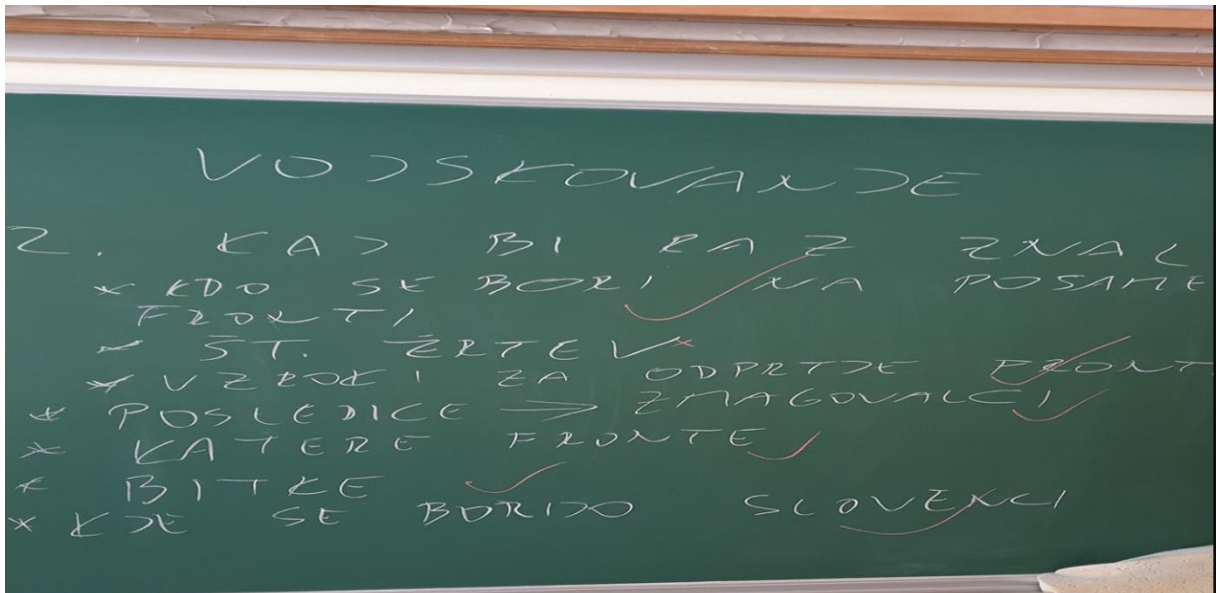 VOJSKOVANJE
2. KAJ BI RAZ ZNAL
* KDO SE BORI NA POSAME
FRONTI
* ŠT. ŽRTEV *
* VZROKI ZA ODPRTJE FRONT
* POSLEDICE => ZMAGOVALCI
* KATERE FRONTE
* BITKE
* KJE SE BORIJO SLOVENCI